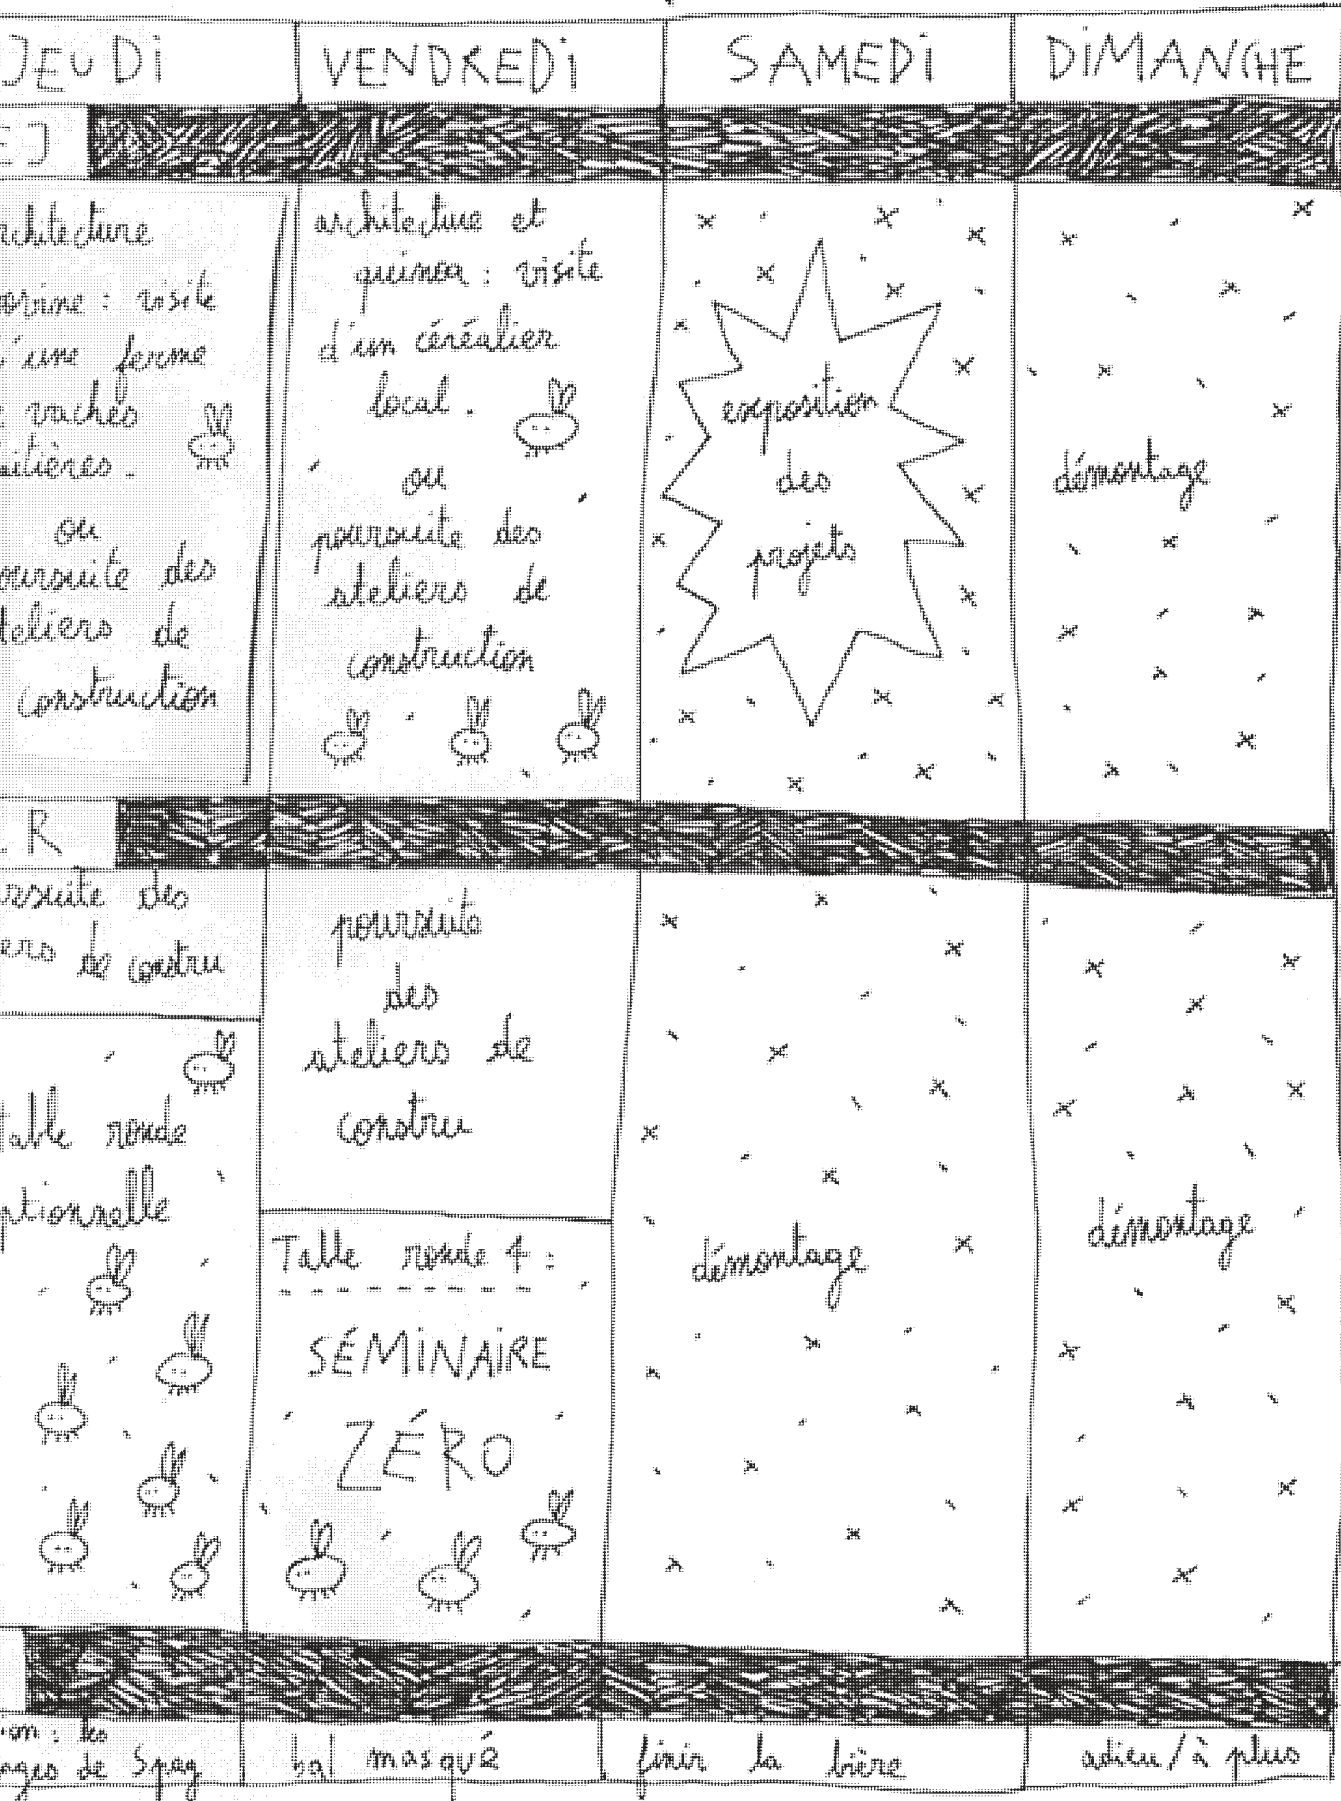 JEUDI
VENDREDI
SAMEDI
DIMANCHE
EJ
rchitecture
ovine : visite
'une ferme
vaches
aitières.
ou
oursuite des
teliers de
construction
architecture et
quinoa : visite
d'un céréalier
local.
ou
poursuite des
ateliers de
construction
exposition
des
projets
démontage
R
rsuite des
ers de constru
table ronde
ptionnelle
poursuite
des
ateliers de
constru
Table ronde 4 :
SÉMINAIRE
ZÉRO
démontage
démontage
on : les
ges de Speg
bal masqué
finir la bière
adieu / à plus